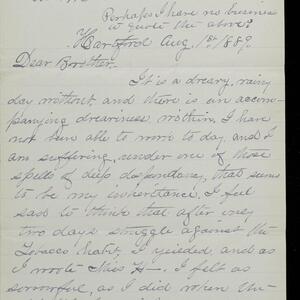 Perhaps I have no business
to quote the above?
Hartford Aug. 1st 1889.
Dear Brother.
It is a dreary, rainy
day without, and there is an accom-
panying dreariness within. I have
not been able to work to day, and I
am suffering under one of those
spells of deep despondency, that seems
to be my inheritance. I feel
sad to think that after my
two days struggle against the
Tobacco habit, I yielded, and as
I wrote Miss H—. I felt as
sorrowful, as I did when the